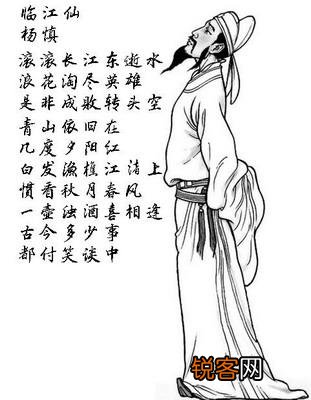 临江仙
杨慎
滚滚长江东逝水
浪花淘尽英雄
是非成败转头空
青山依旧在
几度夕阳红
白发渔樵江渚上
惯看秋月春风
一壶浊酒喜相逢
古今多少事
都付笑谈中
锐客网